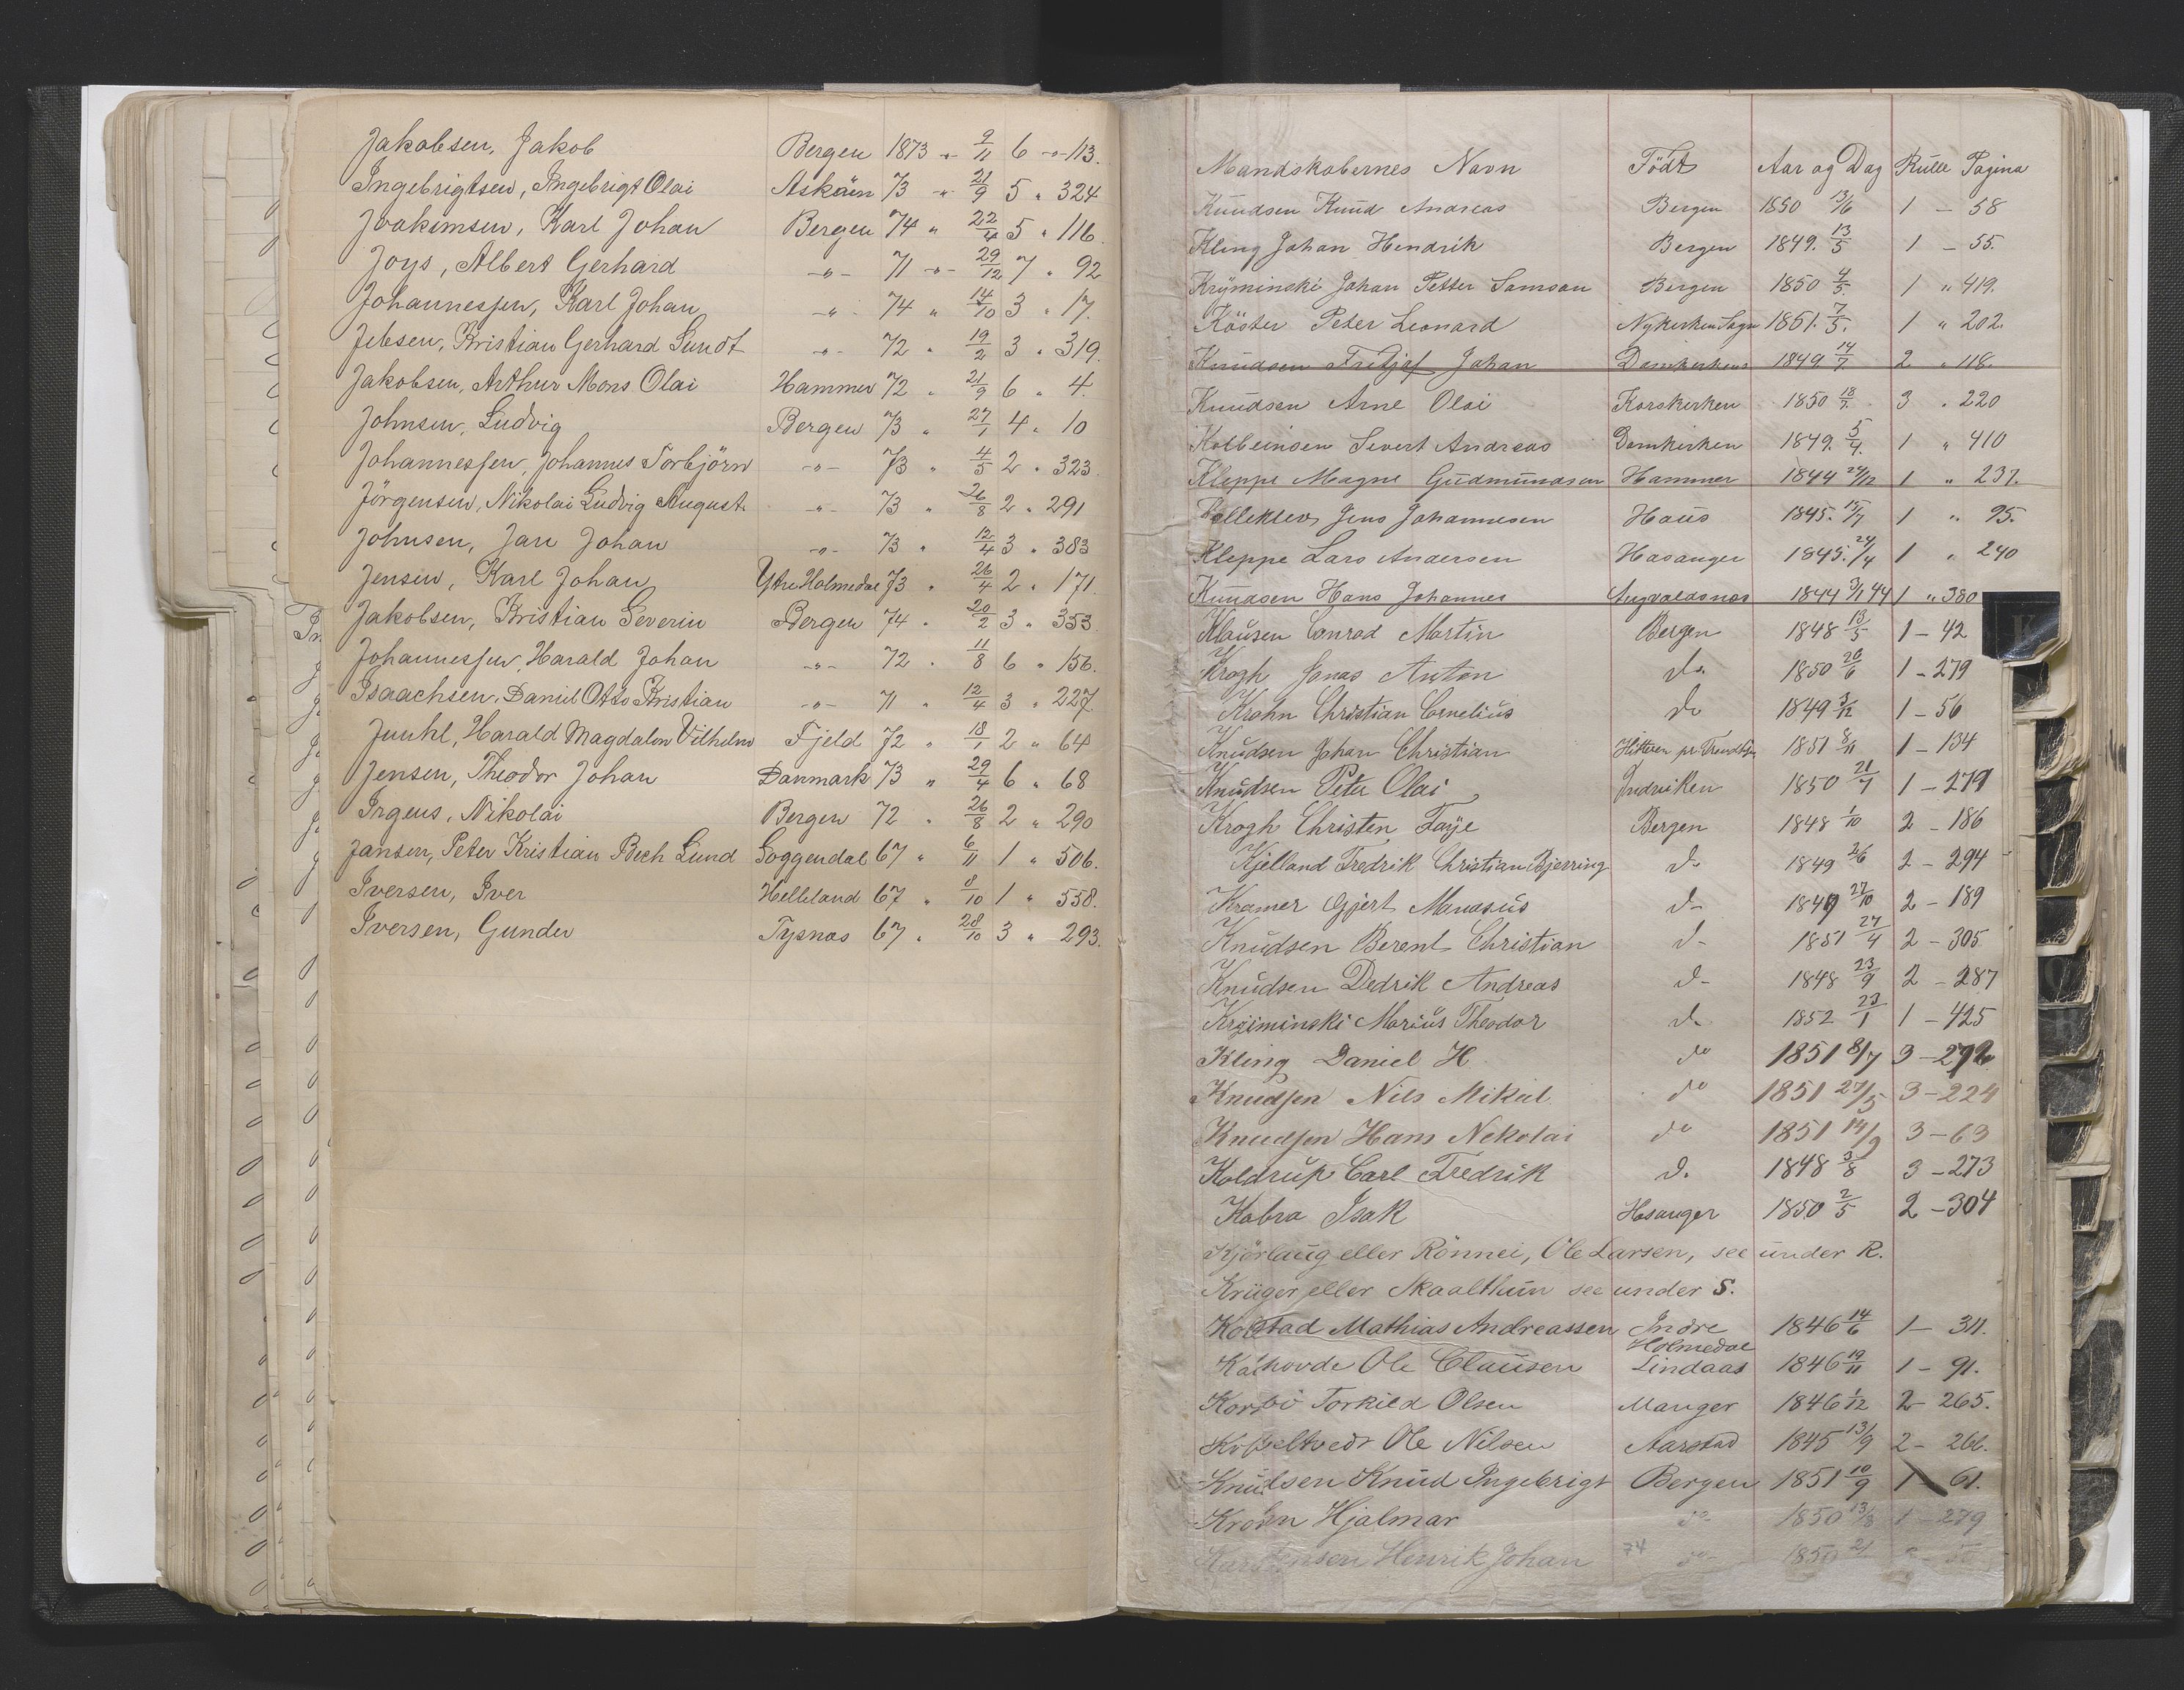 Jakobsen, Jakob Bergen 1873 " 9/11 6 " 113.
Ingebrigtsen, Ingebrigt Olai Askøen 73 " 21/9 5 " 324
Joakimsen, Karl Johan Bergen 74 " 22/4 5 " 116.
Joys, Albert Gerhard -"- 71 " 29/12 7 " 92
Johannessen, Karl Johan -"- 74 " 14/10 3 " 17.
Jebsen, Kristian Gerhard Sundt -"- 72 " 19/2 3 " 319.
Jakobsen, Arthur Mons Olai Hammer 72 " 21/9 6 " 4.
Johnsen, Ludvig Bergen 73 " 27/1 4 " 10
Johannessen, Johannes Torbjörn -"- 73 " 4/5 2 " 323.
Jörgensen, Nikolai Ludvig August -"- 73 " 26/8 2 " 291
Johnsen, Jan Johan -"- 73 " 12/4 3 " 383
Jensen, Karl Johan Ytre Holmedal 73 " 26/4 2 " 171.
Jakobsen, Kristian Severin Bergen 74 " 20/2 3 " 353
Johannessen, Harald Johan -"- 72 " 11/8 6 " 156.
Isaachsen, Daniel Otto Kristian -"- 71 " 12/4 3 " 227.
Juuhl, Harald Magdalon Vilhelm Fjeld 72 " 18/1 2 " 64
Jensen, Theodor Johan Danmark 73 " 29/4 6 " 68
Irgens, Nikolai Bergen 72 " 26/8 2 " 290
Jansen, Peter Kristian Bech Lund Soggendal 67 " 6/11 1 " 506.
Iversen, Iver Helleland 67 " 8/10 1 " 558.
Iversen, Gunder Tysnæs 67 " 28/10 3 " 293.
Mandskabernes Navn Födt Aar og Dag Rulle Pagina
Knudsen Knud Andreas Bergen 1850 13/6 1 - 58
Kling Johan Hendrik Bergen 1849. 13/5 1 - 55.
Kryminski Johan Petter Samson Bergen 1850 4/5. 1 " 419.
Köster Peter Leonard Nykirken Sogn 1851. 7/5. 1 " 202.
Knudsen Fritjof Johan Domkirken 1849. 14/7. 2 " 118.
Knudsen Arne Olai Korskirken 1850 18/7. 3 " 220
Kolbeinsen Sivert Andreas Domkirken 1849. 5/4. 1 " 410
Kleppe Magne Gudmundsen Hammer 1844 24/12 1 " 237.
Jens Johannesen Haus 1845. 15/7 1 " 95.
Kleppe Lars Andersen Hosanger 1845. 24/4 1 " 240
Knudsen Hans Johannes Augvaldsnæs 1844 3/1 44 1 " 380
Klausen Conrad Martin Bergen 1848 13/5 1 - 42
Krogh Jonas Anton do 1850 26/6 1 - 279
Krohn Christian Cornelius do 1849 3/12 1 - 56
Knudsen Johan Christian Hitteren pr Trondhj. 1851 8/11 1 - 134
Knudsen Peter Olai Indviken 1850 21/7 1 - 279
Krogh Christen Faye Bergen 1848 1/10 2 - 186
Kjelland Fredrik Christian Bjerring do 1849 2/6 2 - 294
Kramer Gjert Manasus do 1849 27/10 2 - 189
Knudsen Berent Christian do 1851 27/4 2 - 305
Knudsen Dedrik Andreas do 1848 23/9 2 - 287
Kryiminski Marius Theodor do 1852 23/1 1 - 425
Kling Daniel H. do 1851 8/7 3 - 272
Knudsen Nils Mikal do 1851 27/5 3 - 224
Knudsen Hans Nekolai do 1851 14/9 3 - 63
Koldrup Carl Fredrik do 1848 3/8 3 - 273
Kobra Isak Hosanger 1850 2/5 2 - 304
Kjörlaug eller Rönnei, Ole Larsen, see under R.
Krüger eller Skaalthun see under S.
Kolstad Mathias Andreassen Indre Holmedal 1846 14/6 1 - 311.
Kalhovde Ole Clausen Lindaas 1846 19/11 1 - 91.
Torkild Olsen Manger 1846 1/12 2 - 265.
Ole Nilsen Aarstad 1845 13/9 2 - 266.
Knudsen Knud Ingebrigt Bergen 1851 10/9 1 61.
Krohn Hjalmar do 1850 13/8 1 - 279
Henrik Johan 74 do 1850
K